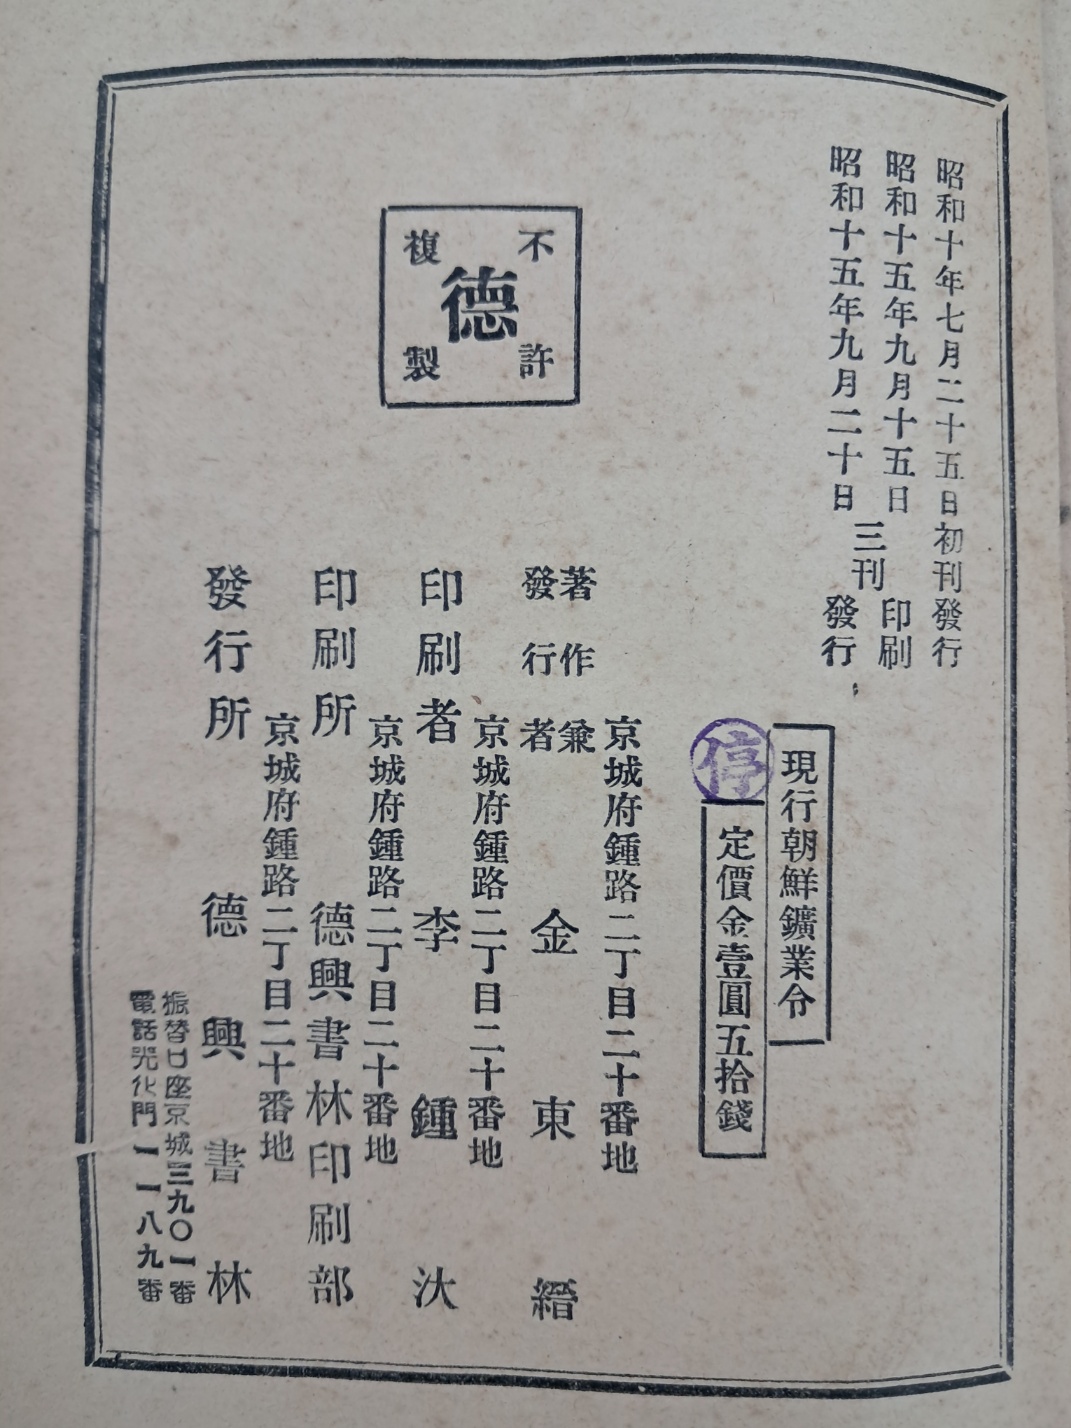 昭和十年七月二十五日初刊發行
昭和十五年九月十五日
昭和十五年九月二十日
三刊
印刷
發行
不許
複製
德
現行朝鮮鑛業令
停
定價金壹圓五拾錢
京城府鍾路二丁目二十番地
著作兼
發行者
金東縉
京城府鍾路二丁目二十番地
印刷者
李鍾汏
京城府鍾路二丁目二十番地
印刷所
德興書林印刷部
京城府鍾路二丁目二十番地
發行所
德興書林
振替口座京城三九〇一番
電話光化門一一八九番